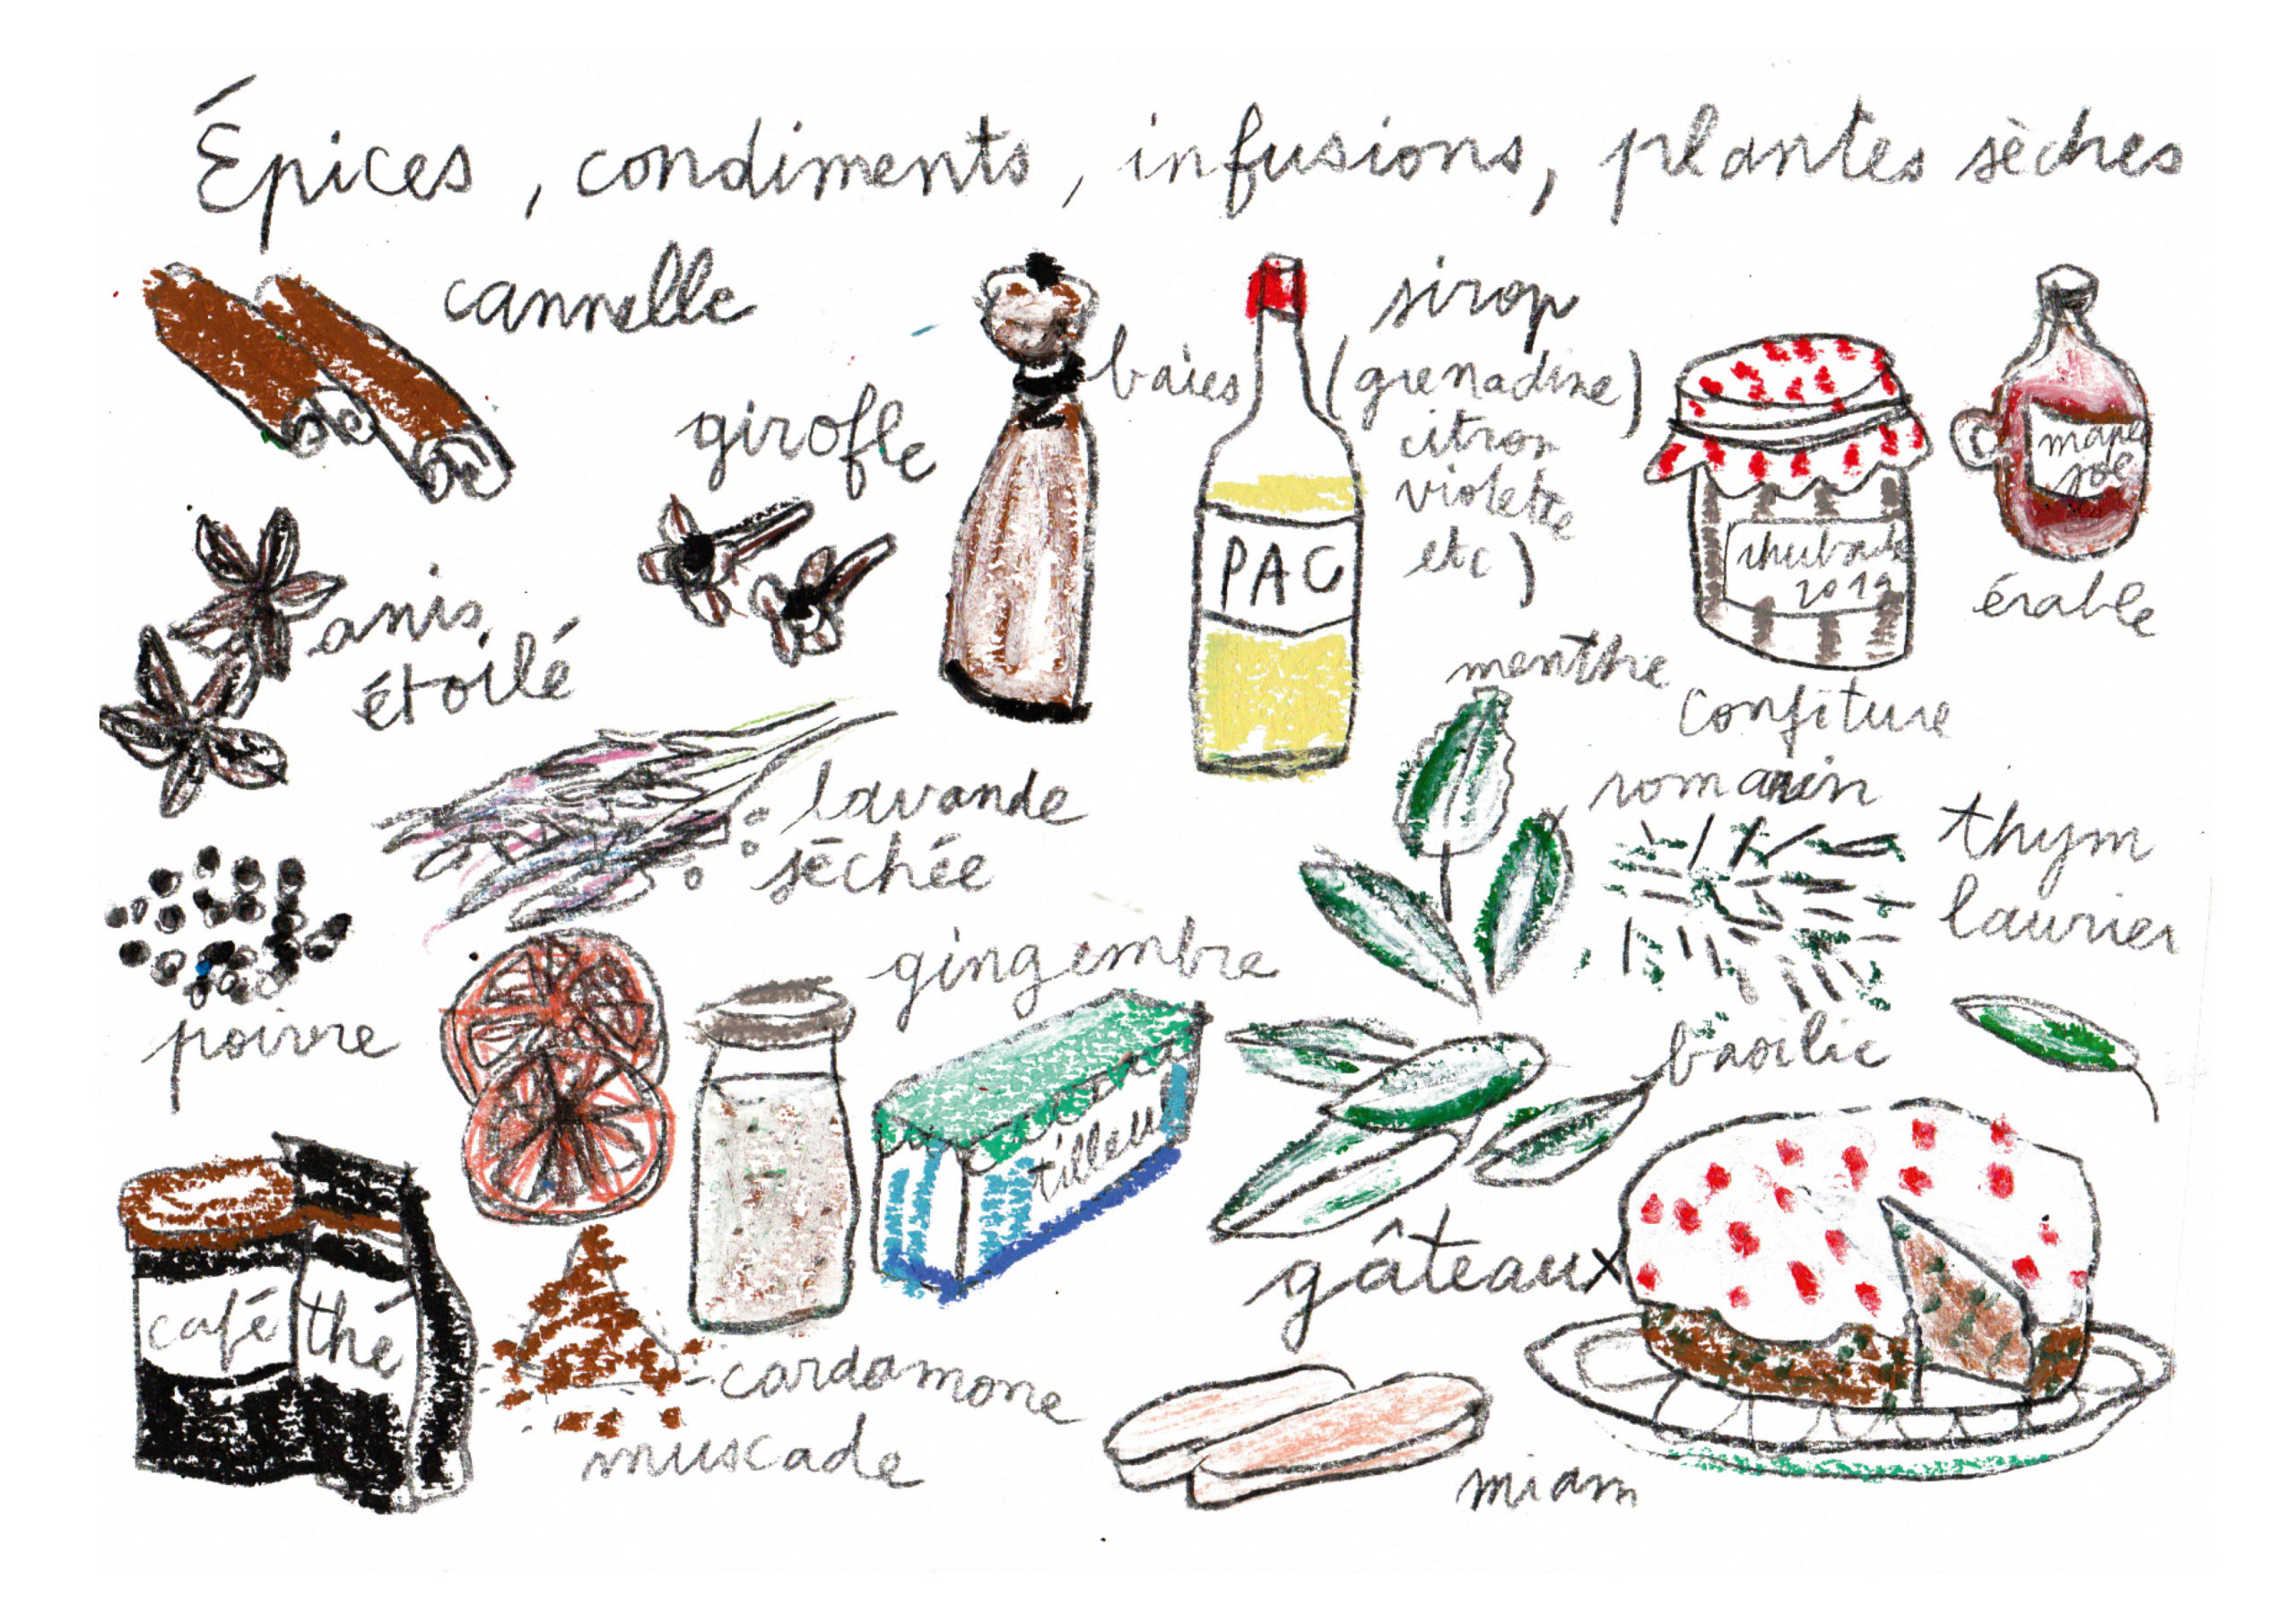 Épices, condiments, infusions, plantes sèches
cannelle
girofle
baies
sirop
(grenadine)
citron
violette
etc)
PAC
rhubarbe
2019
confiture
érable
anis
étoilé
menthe
lavande
séchée
romarin
thym
laurier
poivre
gingembre
tilleul
basilic
café
thé
gâteaux
cardamone
muscade
miam